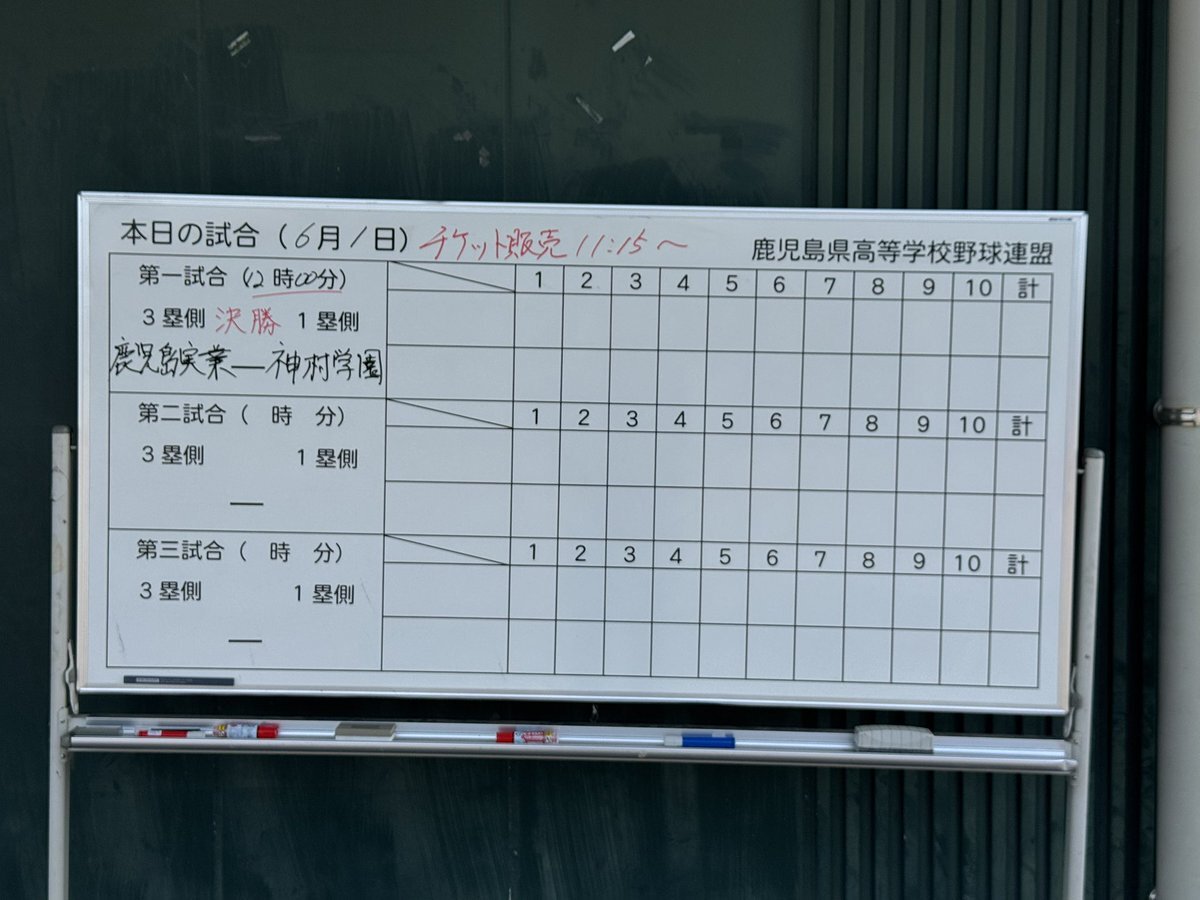 本日の試合（6月1日）チケット販売 11:15～ 鹿児島県高等学校野球連盟
第一試合（12時00分） 1 2 3 4 5 6 7 8 9 10 計
3塁側 決勝 1塁側
鹿児島実業―神村学園
第二試合（ 時 分） 1 2 3 4 5 6 7 8 9 10 計
3塁側 1塁側
―
第三試合（ 時 分） 1 2 3 4 5 6 7 8 9 10 計
3塁側 1塁側
―